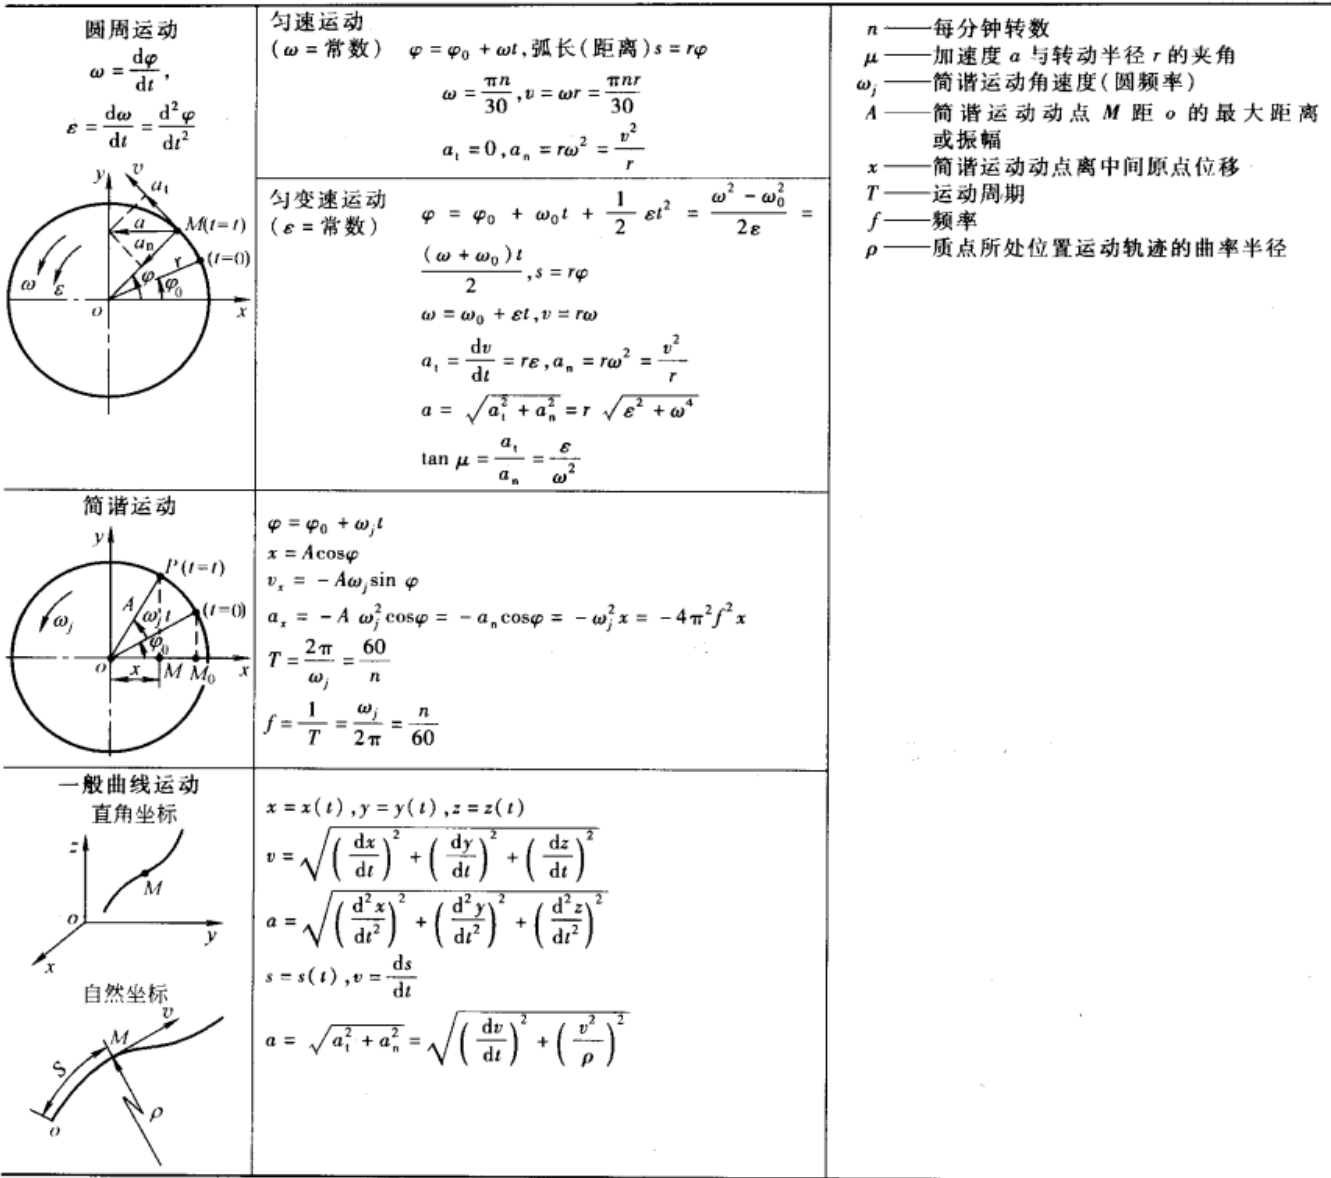 圆周运动
ω = dφ/dt,
ε = dω/dt = d²φ/dt²
y
v
a_t
a
M(t=t)
a_n
r
(t=0)
ω
ε
φ
φ₀
o
x
匀速运动
(ω = 常数) φ = φ₀ + ωt,弧长(距离)s = rφ
ω = πn/30, v = ωr = πnr/30
a_t = 0, a_n = rω² = v²/r
匀变速运动
(ε = 常数) φ = φ₀ + ω₀t + 1/2 εt² = (ω² − ω₀²)/2ε =
(ω + ω₀)t/2, s = rφ
ω = ω₀ + εt, v = rω
a_t = dv/dt = rε, a_n = rω² = v²/r
a = √(a_t² + a_n²) = r √(ε² + ω⁴)
tan μ = a_t/a_n = ε/ω²
简谐运动
y
P(t=t)
A
ω_j t
(t=0)
ω_j
φ₀
o
x
M
M₀
x
φ = φ₀ + ω_j t
x = Acosφ
v_x = − Aω_j sin φ
a_x = − A ω_j² cosφ = − a_n cosφ = − ω_j² x = − 4π²f² x
T = 2π/ω_j = 60/n
f = 1/T = ω_j/2π = n/60
一般曲线运动
直角坐标
z
M
o
y
x
自然坐标
v
M
S
ρ
o
x = x(t), y = y(t), z = z(t)
v = √((dx/dt)² + (dy/dt)² + (dz/dt)²)
a = √((d²x/dt²)² + (d²y/dt²)² + (d²z/dt²)²)
s = s(t), v = ds/dt
a = √(a_t² + a_n²) = √((dv/dt)² + (v²/ρ)²)
n——每分钟转数
μ——加速度 a 与转动半径 r 的夹角
ω_j——简谐运动角速度(圆频率)
A——简谐运动动点 M 距 o 的最大距离
或振幅
x——简谐运动动点离中间原点位移
T——运动周期
f——频率
ρ——质点所处位置运动轨迹的曲率半径